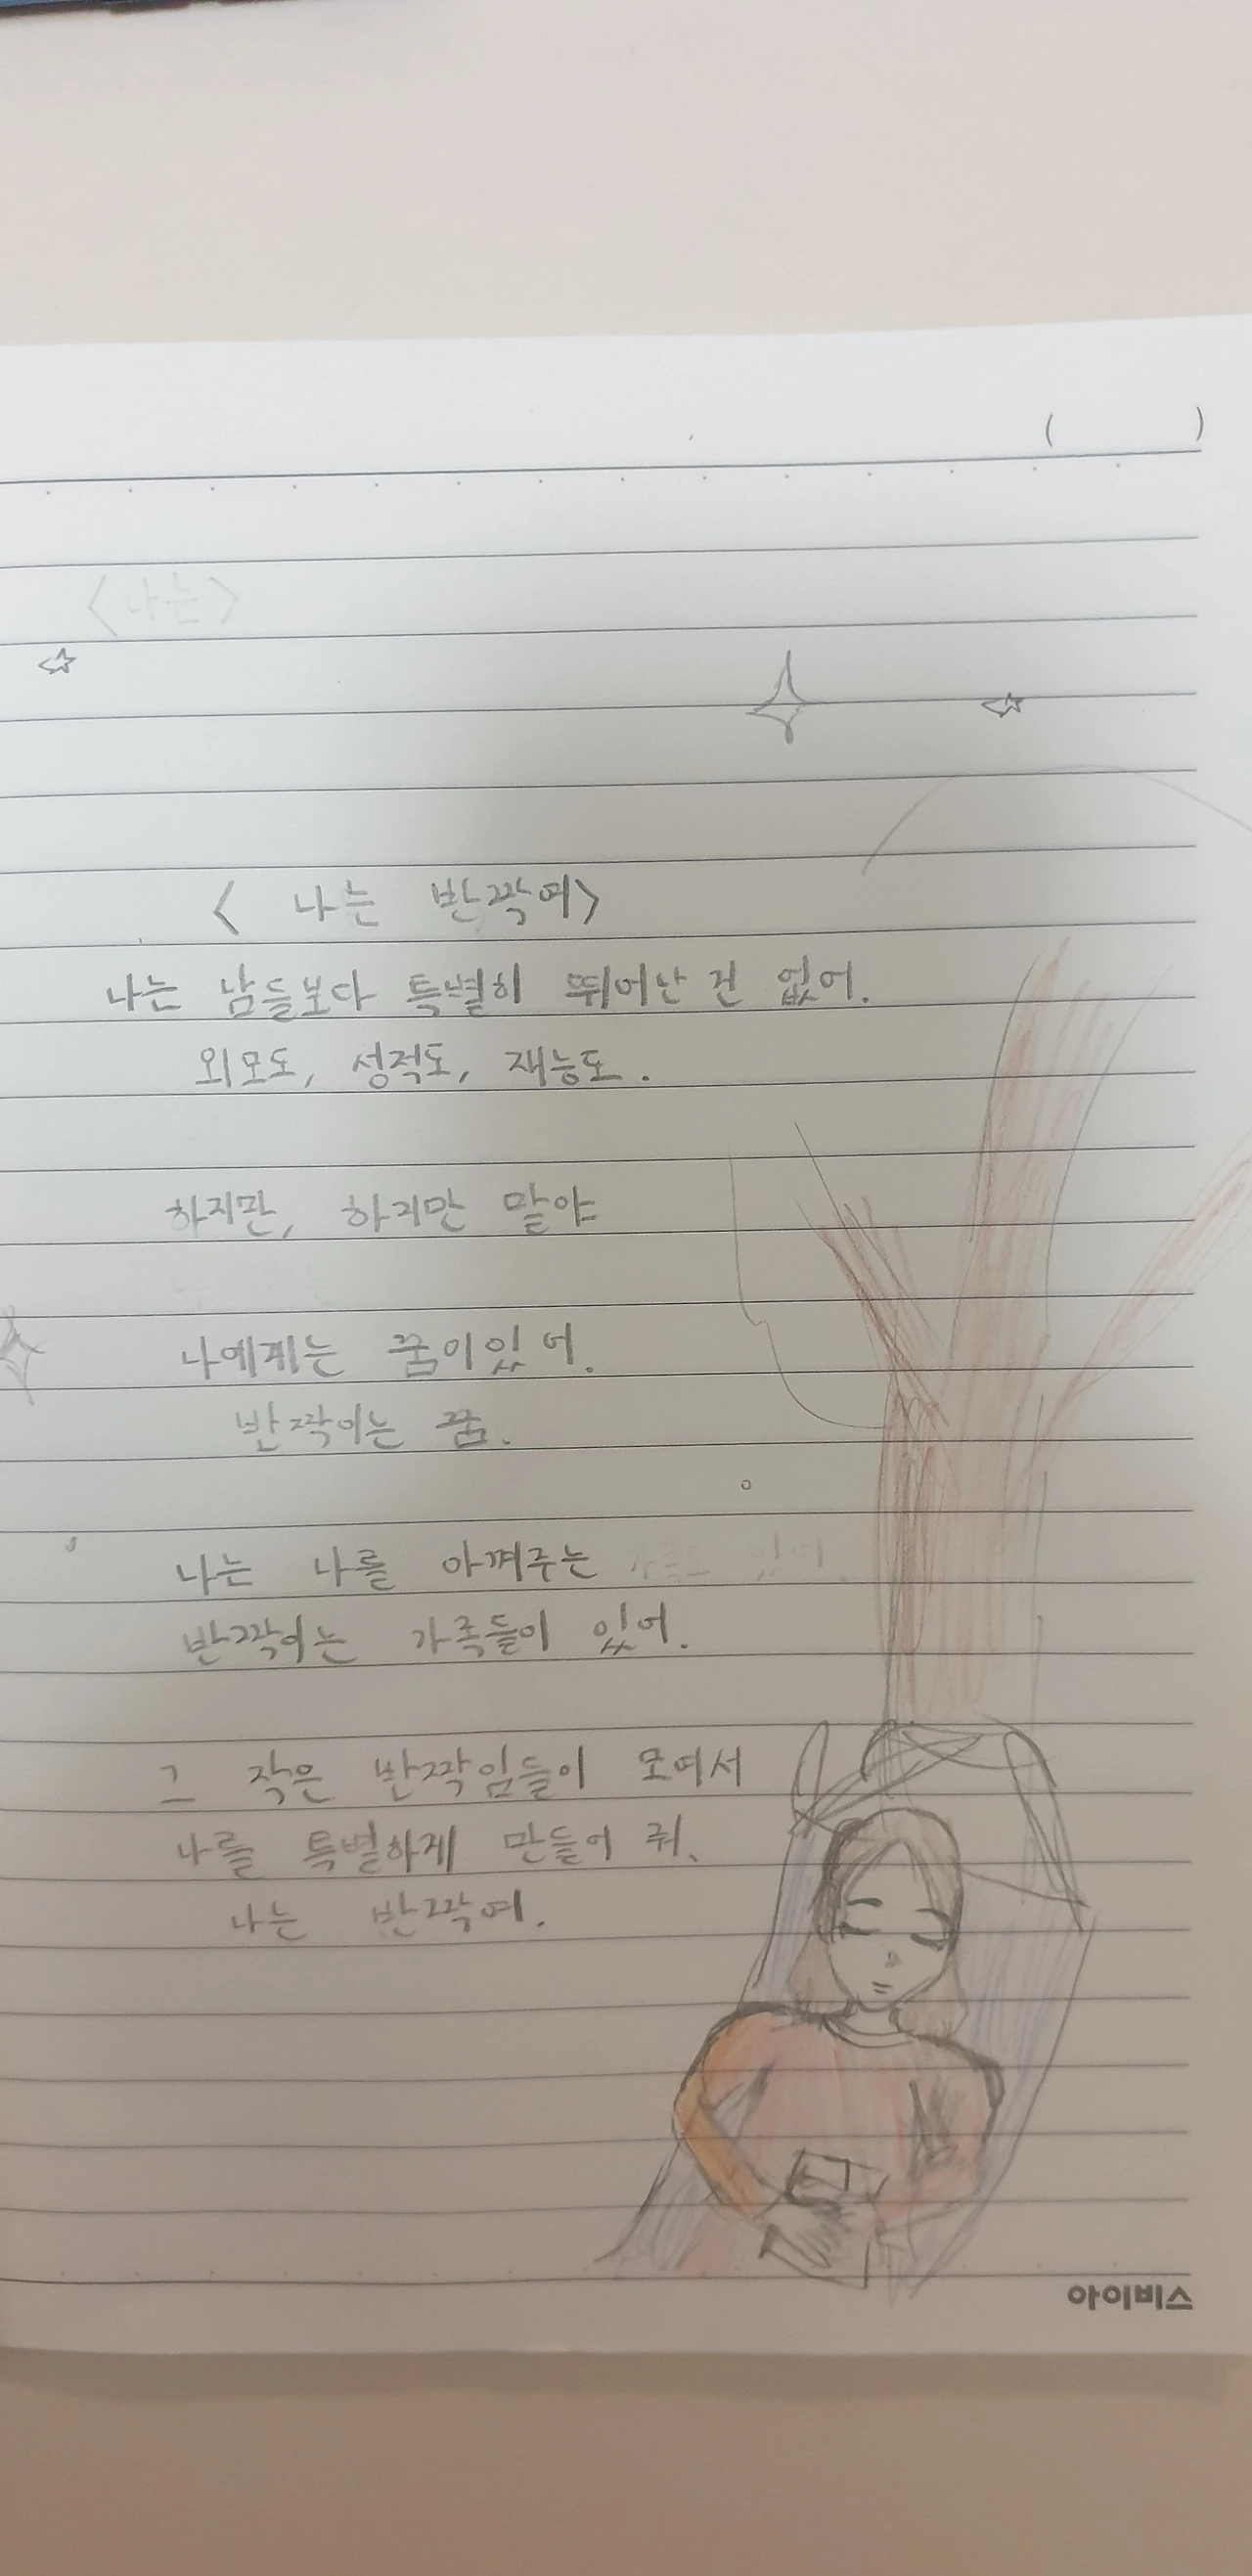 (          )
<나는>
< 나는 반짝여>
나는 남들보다 특별히 뛰어난 건 없어.
외모도, 성적도, 재능도.
하지만, 하지만 말야
나에게는 꿈이있어.
반짝이는 꿈.
나는 나를 아껴주는 가족도 있어.
반짝이는 가족들이 있어.
그 작은 반짝임들이 모여서
나를 특별하게 만들어 줘.
나는 반짝여.
아이비스